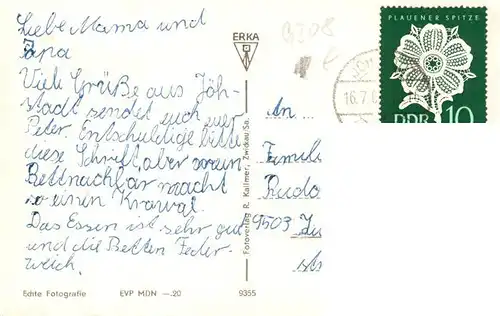 Liebe Mama und
Papa
Viele Grüße aus Jöh-
stadt sendet euch euer
Peter. Entschuldige bitte
diese Schrift, aber mein
Bettnachbar macht
so einen Krawal.
Das Essen ist sehr gut
und die Betten Feder-
weich.
Echte Fotografie EVP MDN —.20 9355
ERKA
Fotoverlag R. Kallmer, Zwickau/Sa.
PLAUENER SPITZE
DDR 10
16.7.
An
Famil
Rudo
9503